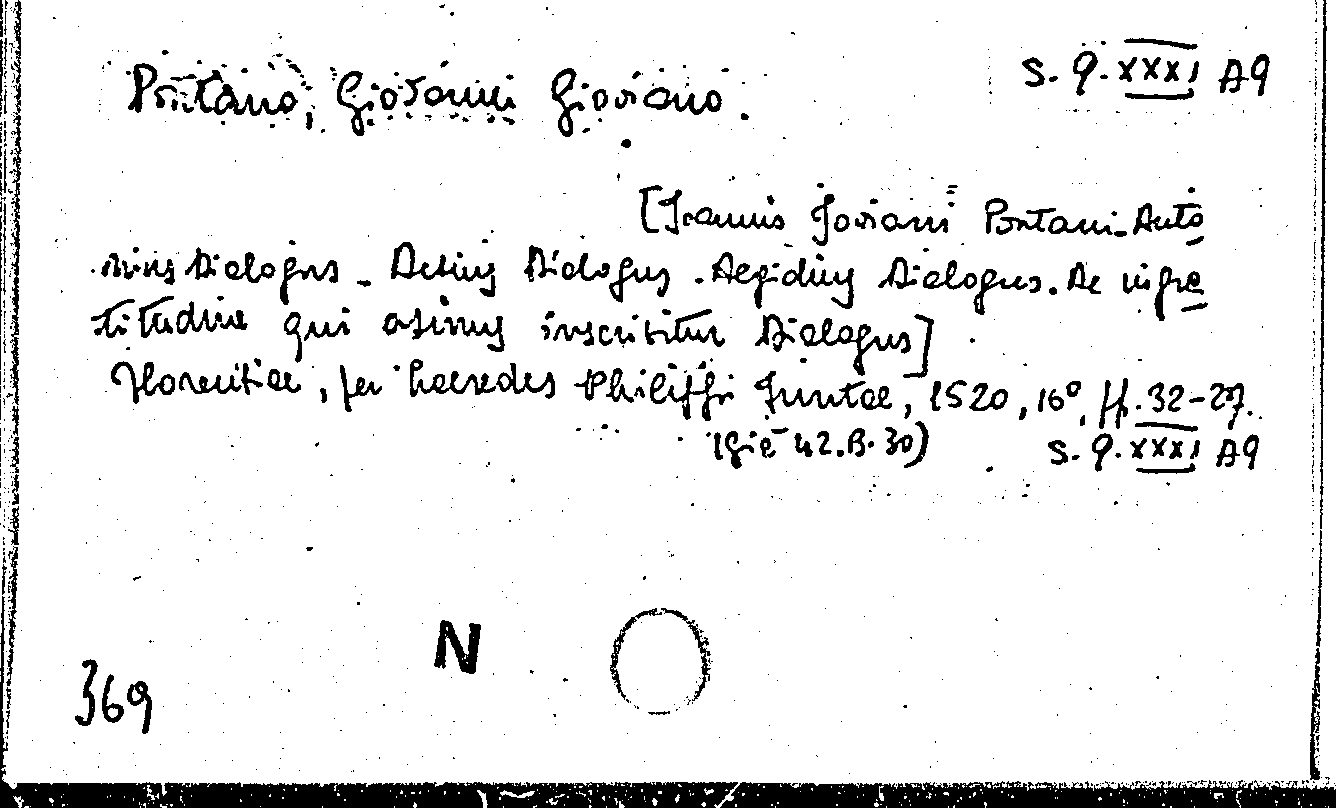 Pontano, Giovanni Gioviano. S. Q. XXXI A9
[Joannis Joviani Pontani - Anto
nius Dialogus - Actius Dialogus. Aegidius Dialogus. De ingra
titudine qui asinus inscribitur Dialogus].
Florentiae, per haeredes Philippi Juntae, 1520, 16°, ff. 32-27.
(già 42.B.30) S. Q. XXXI A9
N
369